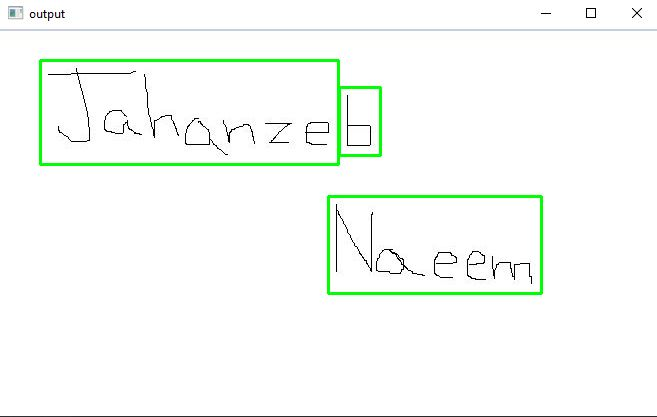 output
Jahanzeb
Naeem